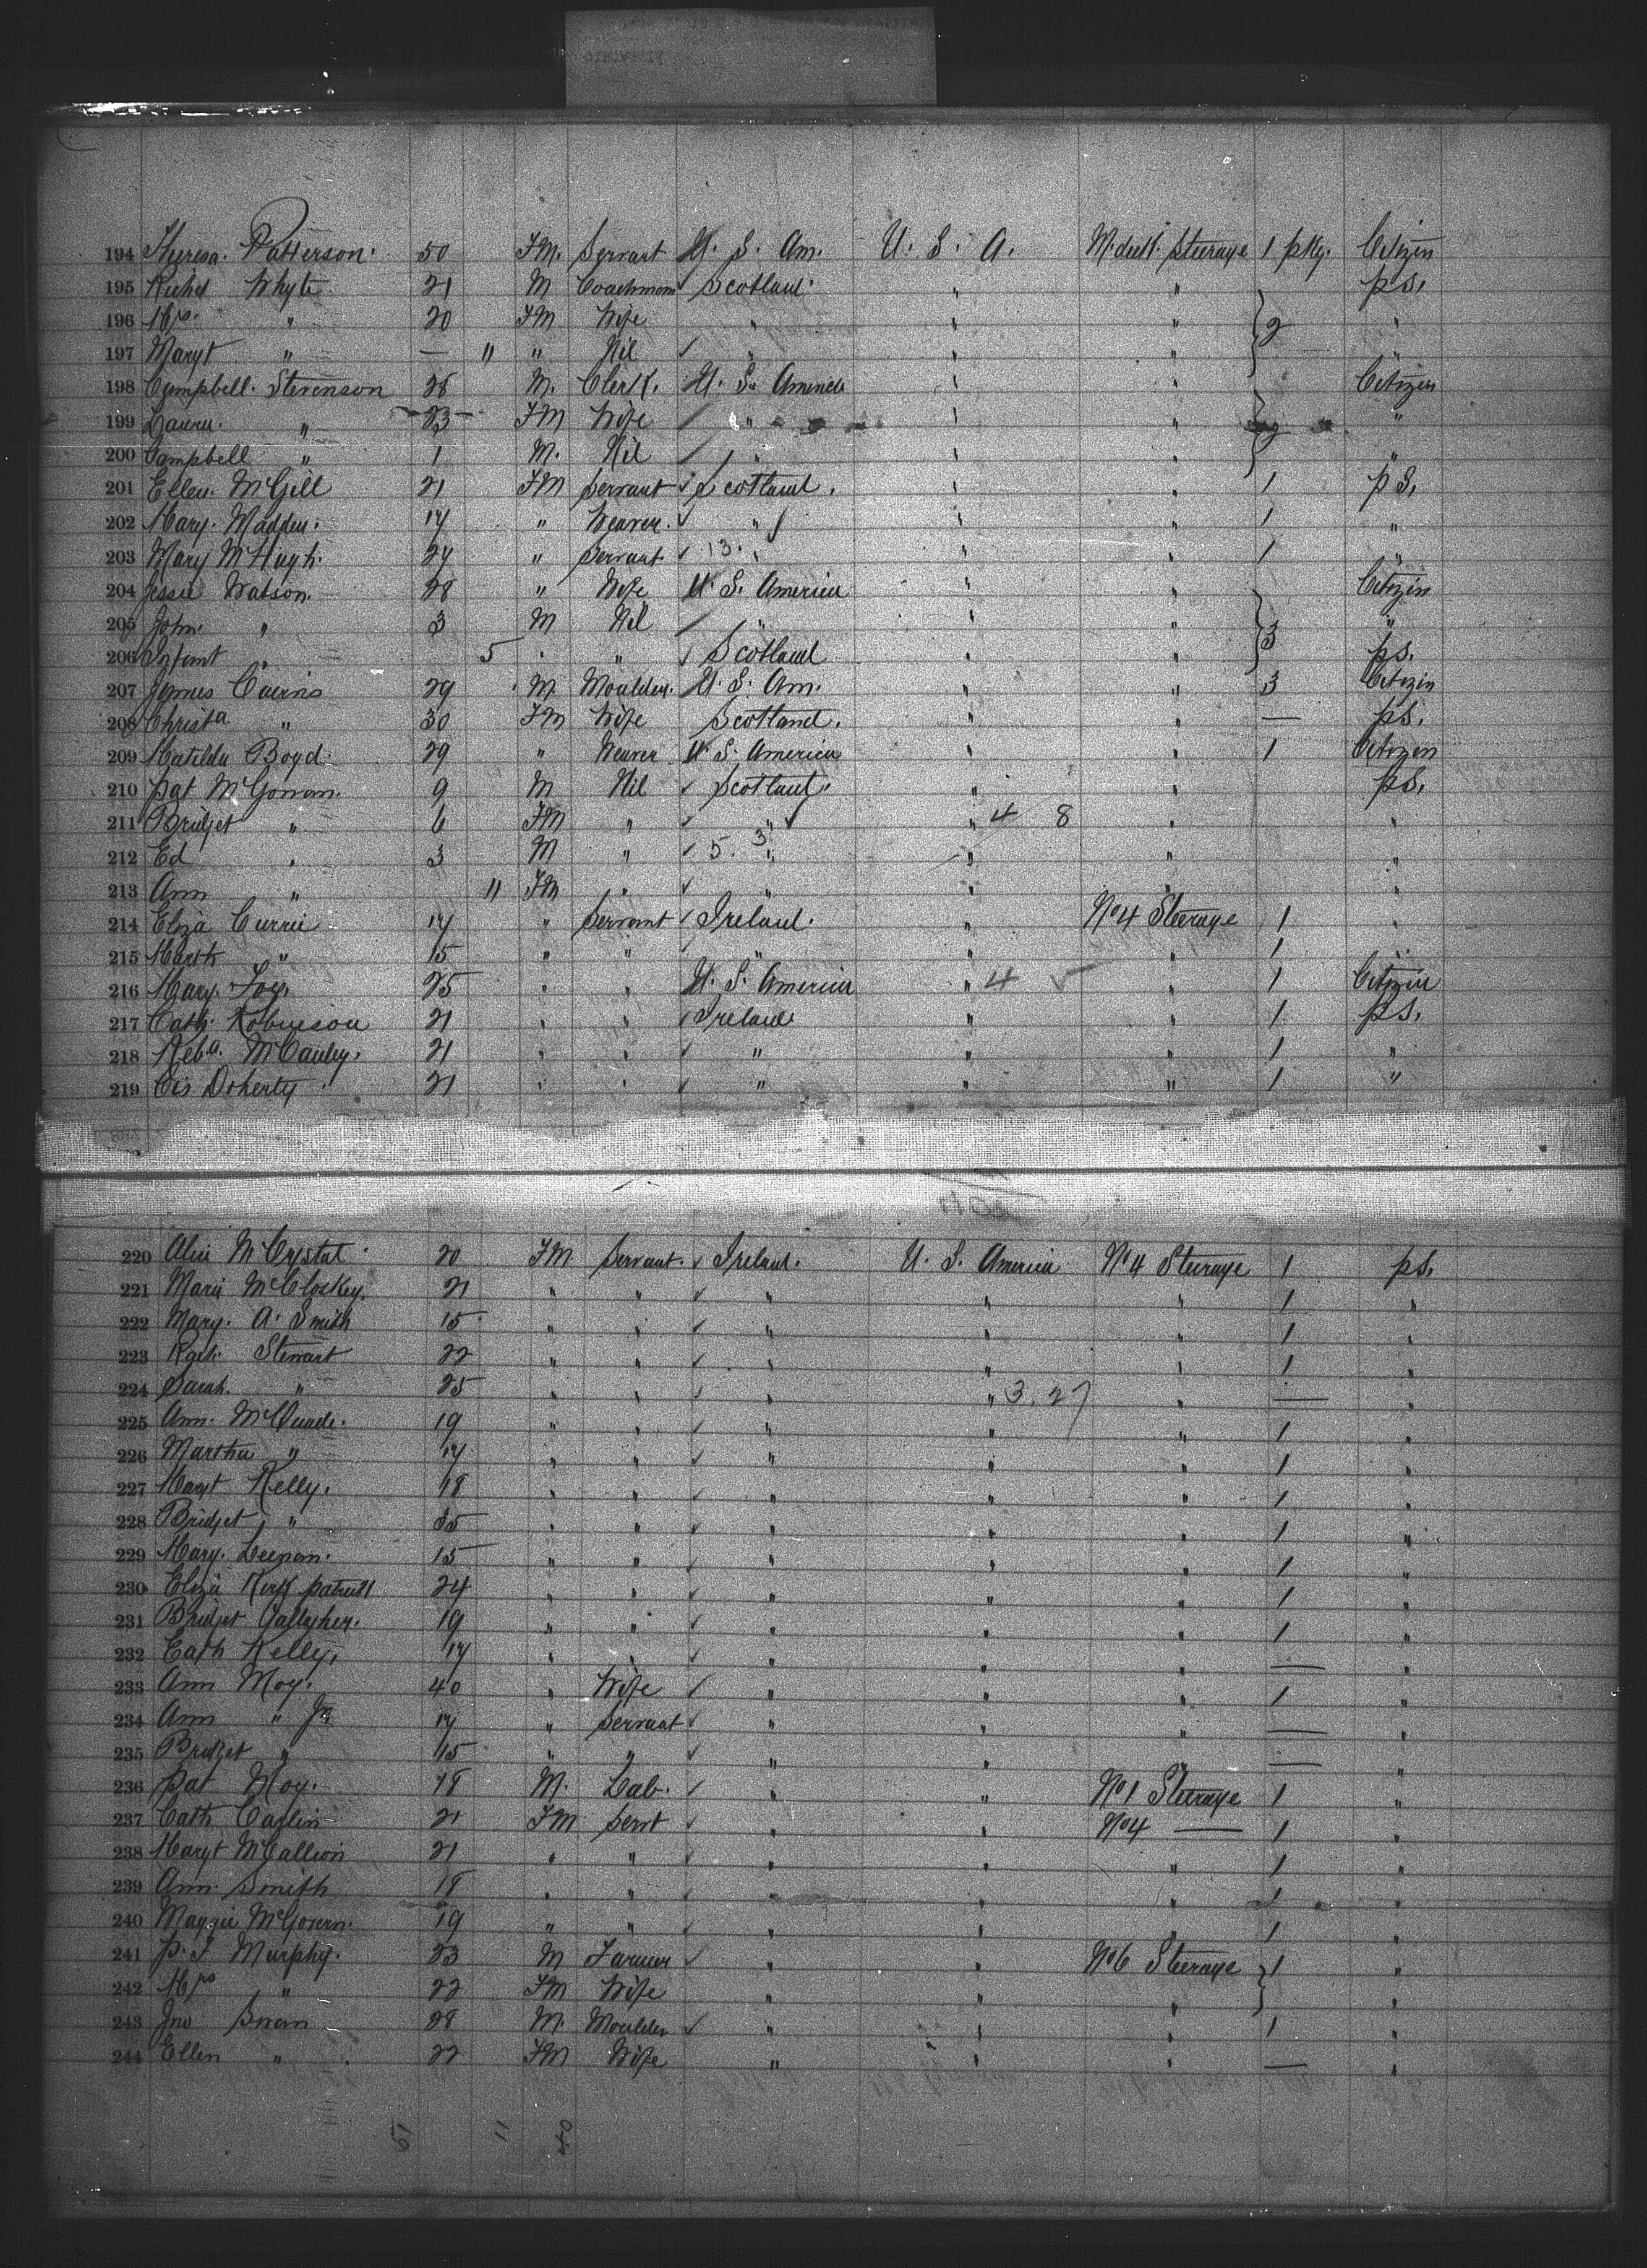 194 Theresa. Patterson. 50 FM. Servant U. S. Am. U. S. A. M. deck. Steerage 1 pkg. Citizen
195 Richd Whyte 21 M Coachman Scotland " " p S.
196 Mrs. " 20 FM Wife " " " } 2 "
197 Margt " — 11 " Nil ✓ " " " "
198 Campbell. Stevenson 28 M. Clerk. U. S. America " " Citizen
199 Laura. " 23 FM Wife " " " } 2 "
200 Campbell " 1 M. Nil " " " "
201 Ellen. McGill 21 FM Servant ✓ Scotland. " " 1 p S.
202 Mary. Madden. 17 " Weaver. ✓ " " " 1 "
203 Mary McHugh. 24 " Servant ✓ 13. " " " 1 "
204 Jessie Watson. 28 " Wife U. S. America " " Citizen
205 John. " 3 M Nil " " " } 3 "
206 Infant " 5 " " ✓ Scotland " " p S.
207 James Cairns 29 M Moulder. U. S. Am. " " 3 Citizen
208 Christa " 30 FM Wife Scotland. " " — p S.
209 Matilda Boyd. 29 " Weaver U. S. America " " 1 Citizen
210 Pat McGowan. 9 M Nil ✓ Scotland. " " p S.
211 Bridget " 6 FM " ✓ " " 4 8 " "
212 Ed " 3 M " ✓ 5. 3 " " " "
213 Ann " 11 FM " ✓ " " " "
214 Eliza Currie 17 " Servant ✓ Ireland. " No 4 Steerage 1 "
215 " 15 " " " " " 1 "
216 Mary. Foy. 25 " " U. S. America " 4 ✓ " 1 Citizen
217 Cath. Robinson 21 " " ✓ Ireland " " 1 p S.
218 Reba. McCauley. 21 " " ✓ " " " 1 "
219 Cis Doherty 21 " " ✓ " " " 1 "
220 Alice McCrystal 20 FM Servant. ✓ Ireland. U. S. America No 4 Steerage 1 p S.
221 Maria McCloskey. 21 " " ✓ " " " 1 "
222 Mary. A. Smith 15 " " ✓ " " " 1 "
223 Stewart 22 " " ✓ " " " 1 "
224 Sarah. " 25 " " ✓ " " 3. 27 " — "
225 Ann. McQuade. 19 " " ✓ " " " 1 "
226 Martha " 17 " " ✓ " " " 1 "
227 Margt Kelly. 18 " " ✓ " " " 1 "
228 Bridget " 35 " " ✓ " " " 1 "
229 Mary. 15 " " ✓ " " " 1 "
230 Eliza Kirkpatrick 24 " " ✓ " " " 1 "
231 Bridget Gallagher. 19 " " ✓ " " " 1 "
232 Cath Kelly, 17 " " ✓ " " " — "
233 Ann Moy. 40 " Wife ✓ " " " 1 "
234 Ann " Jr 17 " Servant ✓ " " " — "
235 Bridget " 15 " " ✓ " " " — "
236 Pat Moy. 18 M. Lab. ✓ " " No 1 Steerage 1 "
237 Cath Carlin 21 FM Servt ✓ " " No 4 — 1 "
238 Margt McCallion 21 " " ✓ " " " 1 "
239 Ann. Smith 18 " " ✓ " " " 1 "
240 Maggie McGovern. 19 " " ✓ " " " 1 "
241 P. J Murphy. 23 M Farmer ✓ " " No 6 Steerage } 1 "
242 Mrs " 22 FM Wife " " " "
243 Jno Swan 28 M. Moulder ✓ " " " 1 "
244 Ellen " 22 FM Wife " " " — "
61 11 40